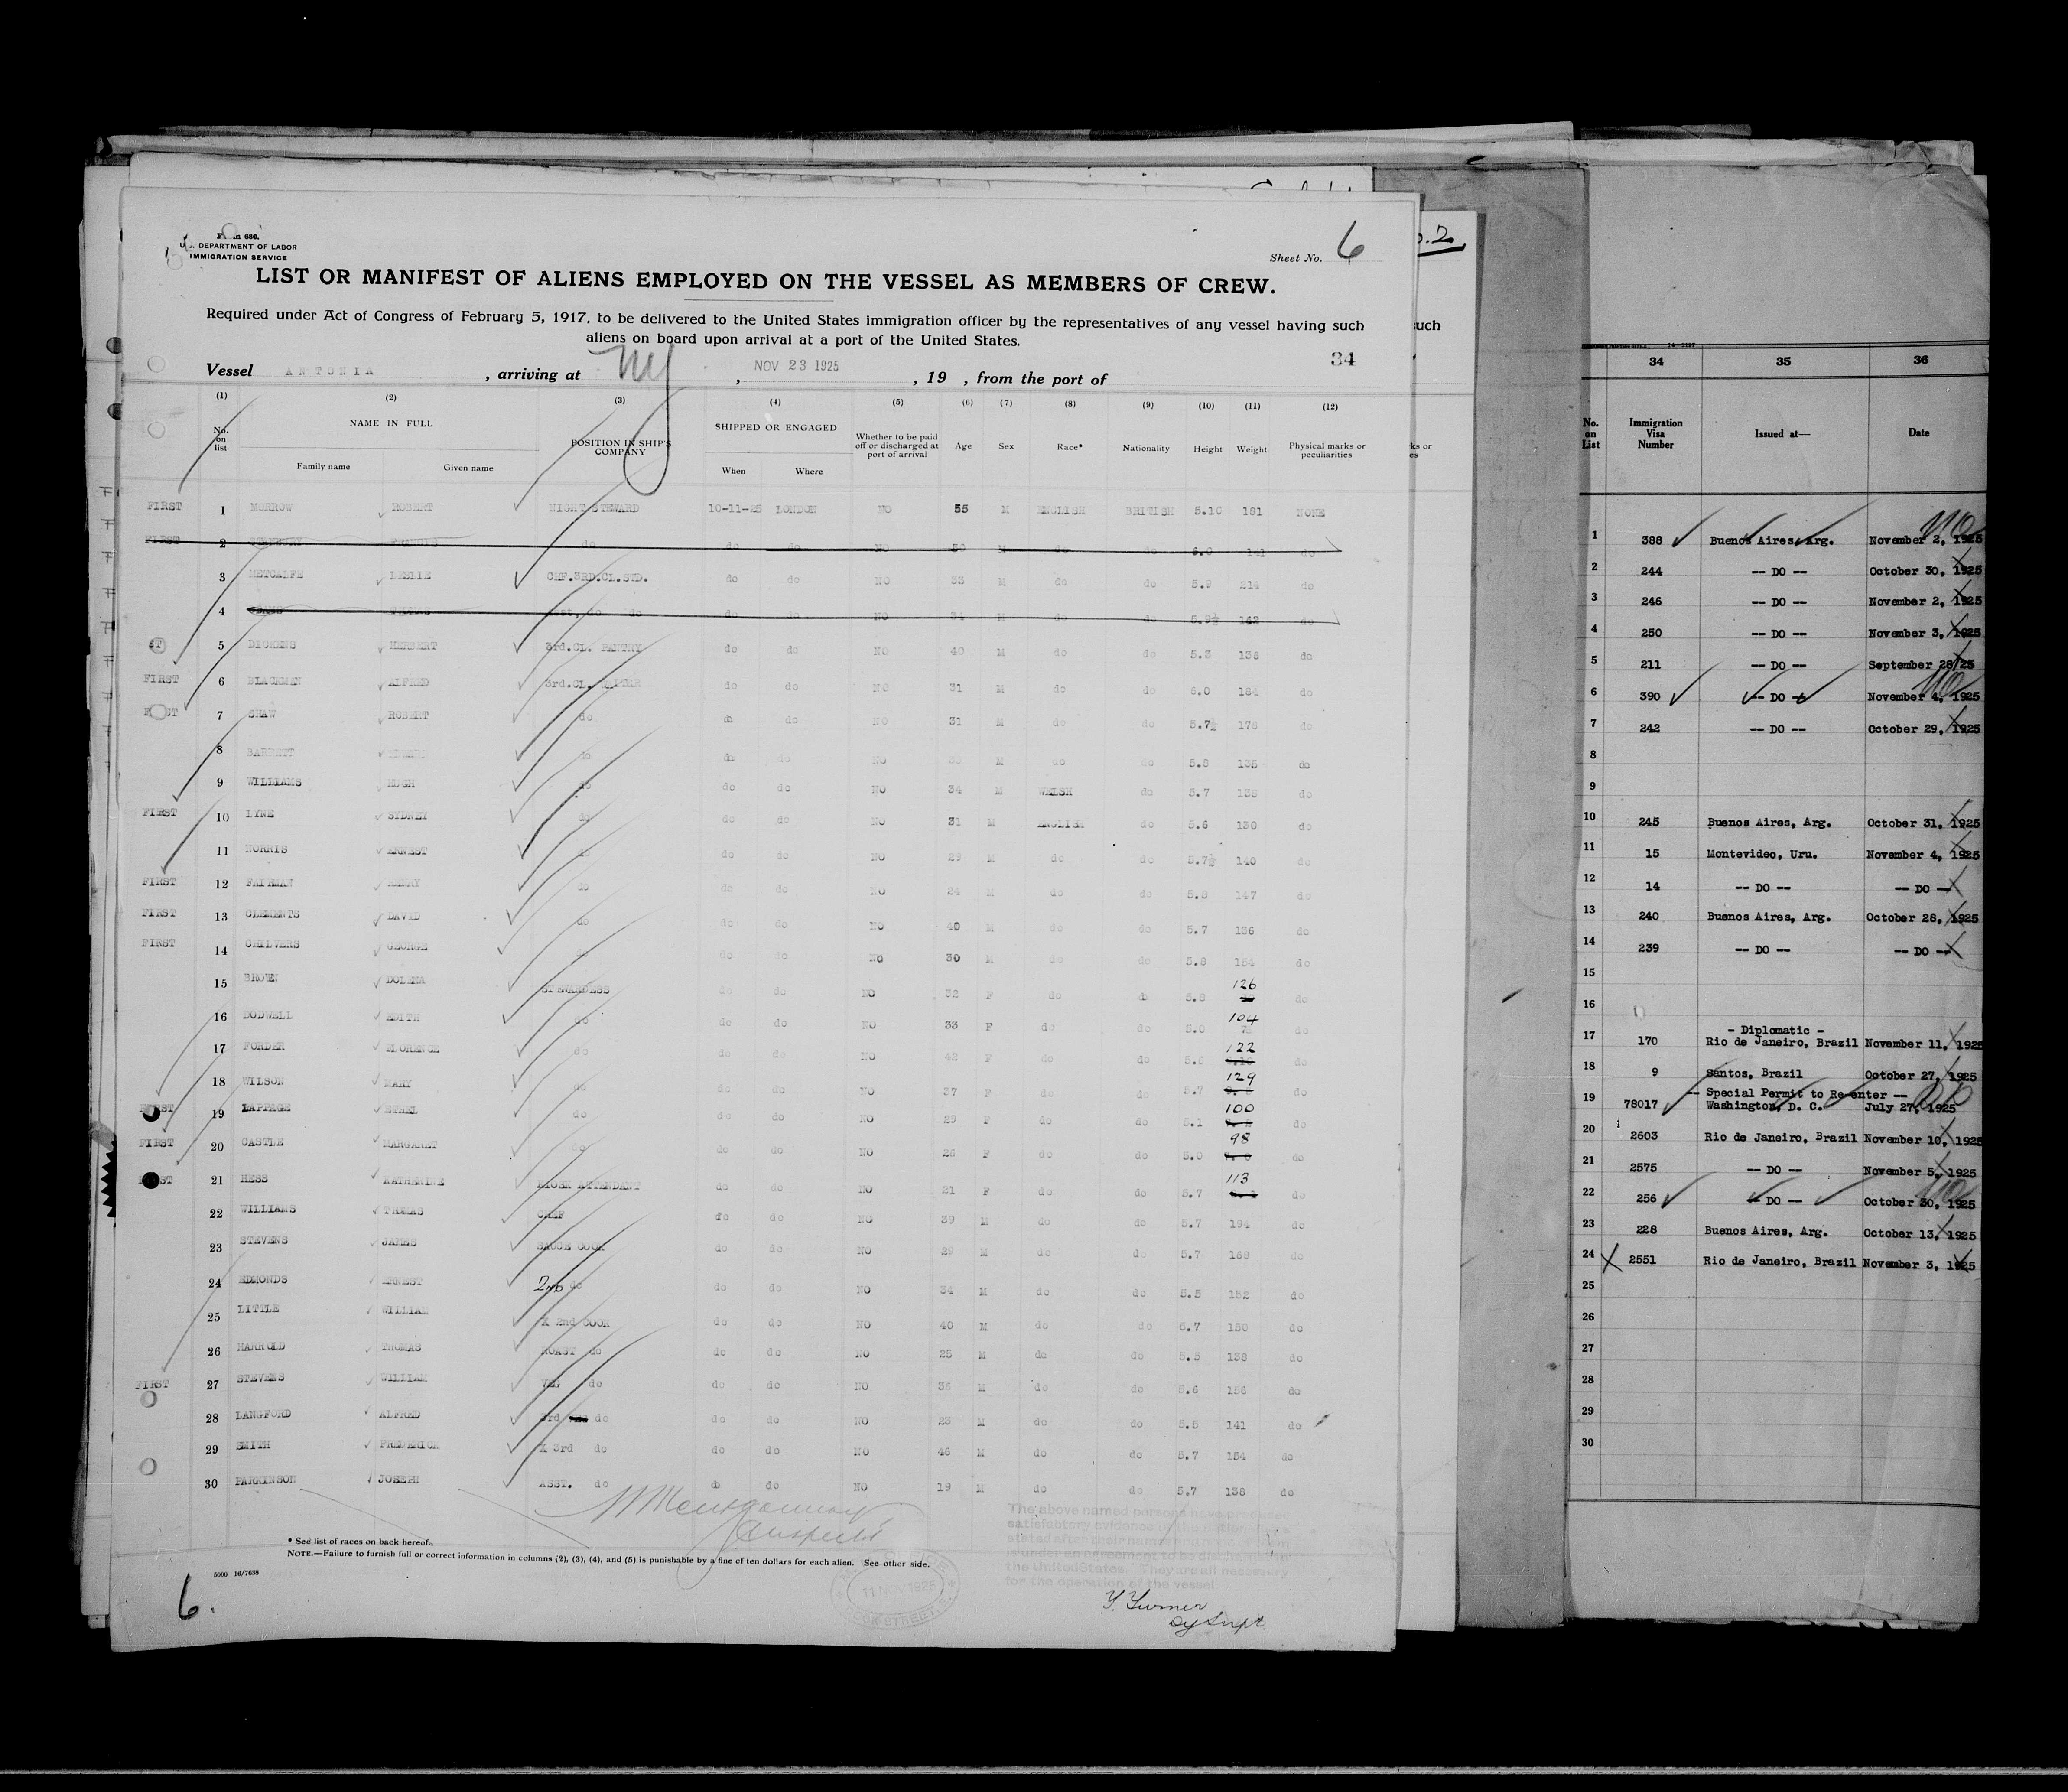 Form 680.
U.S. DEPARTMENT OF LABOR
IMMIGRATION SERVICE
Sheet No. 6
LIST OR MANIFEST OF ALIENS EMPLOYED ON THE VESSEL AS MEMBERS OF CREW.
Required under Act of Congress of February 5, 1917, to be delivered to the United States immigration officer by the representatives of any vessel having such
aliens on board upon arrival at a port of the United States.
34
Vessel ANTONIA, arriving at NY, NOV 23 1925, 19 , from the port of
(1) (2) (3) (4) (5) (6) (7) (8) (9) (10) (11) (12)
No. on list NAME IN FULL Family name Given name POSITION IN SHIP'S COMPANY SHIPPED OR ENGAGED When Where Whether to be paid off or discharged at port of arrival Age Sex Race* Nationality Height Weight Physical marks or peculiarities
FIRST 1 MORROW ROBERT NIGHT STEWARD 10-11-25 LONDON NO 55 M ENGLISH BRITISH 5.10 181 NONE
FIRST 2 FRANCIS do do do NO 50 M do do 6.0 141 do
3 METCALFE LESLIE CHF.3RD.CL.STD. do do NO 33 M do do 5.9 214 do
4 do do do NO 34 do do 5.9½ 142 do
5 DICKENS HERBERT 3rd.CL. PANTRY do do NO 40 M do do 5.3 138 do
FIRST 6 BLACKMEN ALFRED 3rd.CL. WAITER do do NO 31 M do do 6.0 184 do
7 SHAW ROBERT do do do NO 31 M do do 5.7½ 178 do
8 BARRETT do do do NO M do do 5.8 135 do
9 WILLIAMS HUGH do do do NO 34 M WELSH do 5.7 138 do
FIRST 10 LYNE SYDNEY do do do NO 31 M ENGLISH do 5.6 130 do
11 NORRIS ERNEST do do do NO 29 M do do 5.7½ 140 do
FIRST 12 HENRY do do do NO 24 M do do 5.8 147 do
FIRST 13 CLEMENTS DAVID do do do NO 40 M do do 5.7 136 do
FIRST 14 CHILVERS GEORGE do do do NO 30 M do do 5.8 154 do
15 BROWN DOLENA STEWARDESS do do NO 32 F do do 5.8 126 do
16 DODWELL EDITH do do do NO 33 F do do 5.0 104 do
17 FORDER FLORENCE do do do NO 42 F do do 5.6 122 do
18 WILSON MARY do do do NO 37 F do do 5.7 129 do
FIRST 19 LAPPAGE ETHEL do do do NO 29 F do do 5.1 100 do
FIRST 20 CASTLE MARGARET do do do NO 26 F do do 5.0 98 do
21 HESS KATHERINE KIOSK ATTENDANT do do NO 21 F do do 5.7 113 do
22 WILLIAMS THOMAS CHEF do do NO 39 M do do 5.7 194 do
23 STEVENS JAMES SAUCE COOK do do NO 29 M do do 5.7 168 do
24 EDMONDS ERNEST 2nd do do do NO 34 M do do 5.5 152 do
25 LITTLE WILLIAM X 2nd COOK do do NO 40 M do do 5.7 150 do
26 HARROLD THOMAS ROAST do do do NO 25 M do do 5.5 138 do
FIRST 27 STEVENS WILLIAM VEG do do do NO 36 M do do 5.6 156 do
28 LANGFORD ALFRED 3rd do do do NO 23 M do do 5.5 141 do
29 SMITH FREDERICK X 3rd do do do NO 46 M do do 5.7 154 do
30 PARKINSON JOSEPH ASST. do do do NO 19 M do do 5.7 138 do
The above named persons have produced
satisfactory evidence
the United States. They are all necessary
for the operation of the vessel.
* See list of races on back hereof.
NOTE.—Failure to furnish full or correct information in columns (2), (3), (4), and (5) is punishable by a fine of ten dollars for each alien. See other side.
6.
34 35 36
No. on List Immigration Visa Number Issued at— Date
1 388 Buenos Aires, Arg. November 2, 1925
2 244 -- DO -- October 30, 1925
3 246 -- DO -- November 2, 1925
4 250 -- DO -- November 3, 1925
5 211 -- DO -- September 28/25
6 390 -- DO -- November 4, 1925
7 242 -- DO -- October 29, 1925
8
9
10 245 Buenos Aires, Arg. October 31, 1925
11 15 Montevideo, Uru. November 4, 1925
12 14 -- DO -- -- DO --
13 240 Buenos Aires, Arg. October 28, 1925
14 239 -- DO -- -- DO --
15
16
- Diplomatic -
17 170 Rio de Janeiro, Brazil November 11, 1925
18 9 Santos, Brazil October 27, 1925
-- Special Permit to Re-enter --
19 78017 Washington, D. C. July 27, 1925
20 2603 Rio de Janeiro, Brazil November 10, 1925
21 2575 -- DO -- November 5, 1925
22 256 -- DO -- October 30, 1925
23 228 Buenos Aires, Arg. October 13, 1925
24 2551 Rio de Janeiro, Brazil November 3, 1925
25
26
27
28
29
30